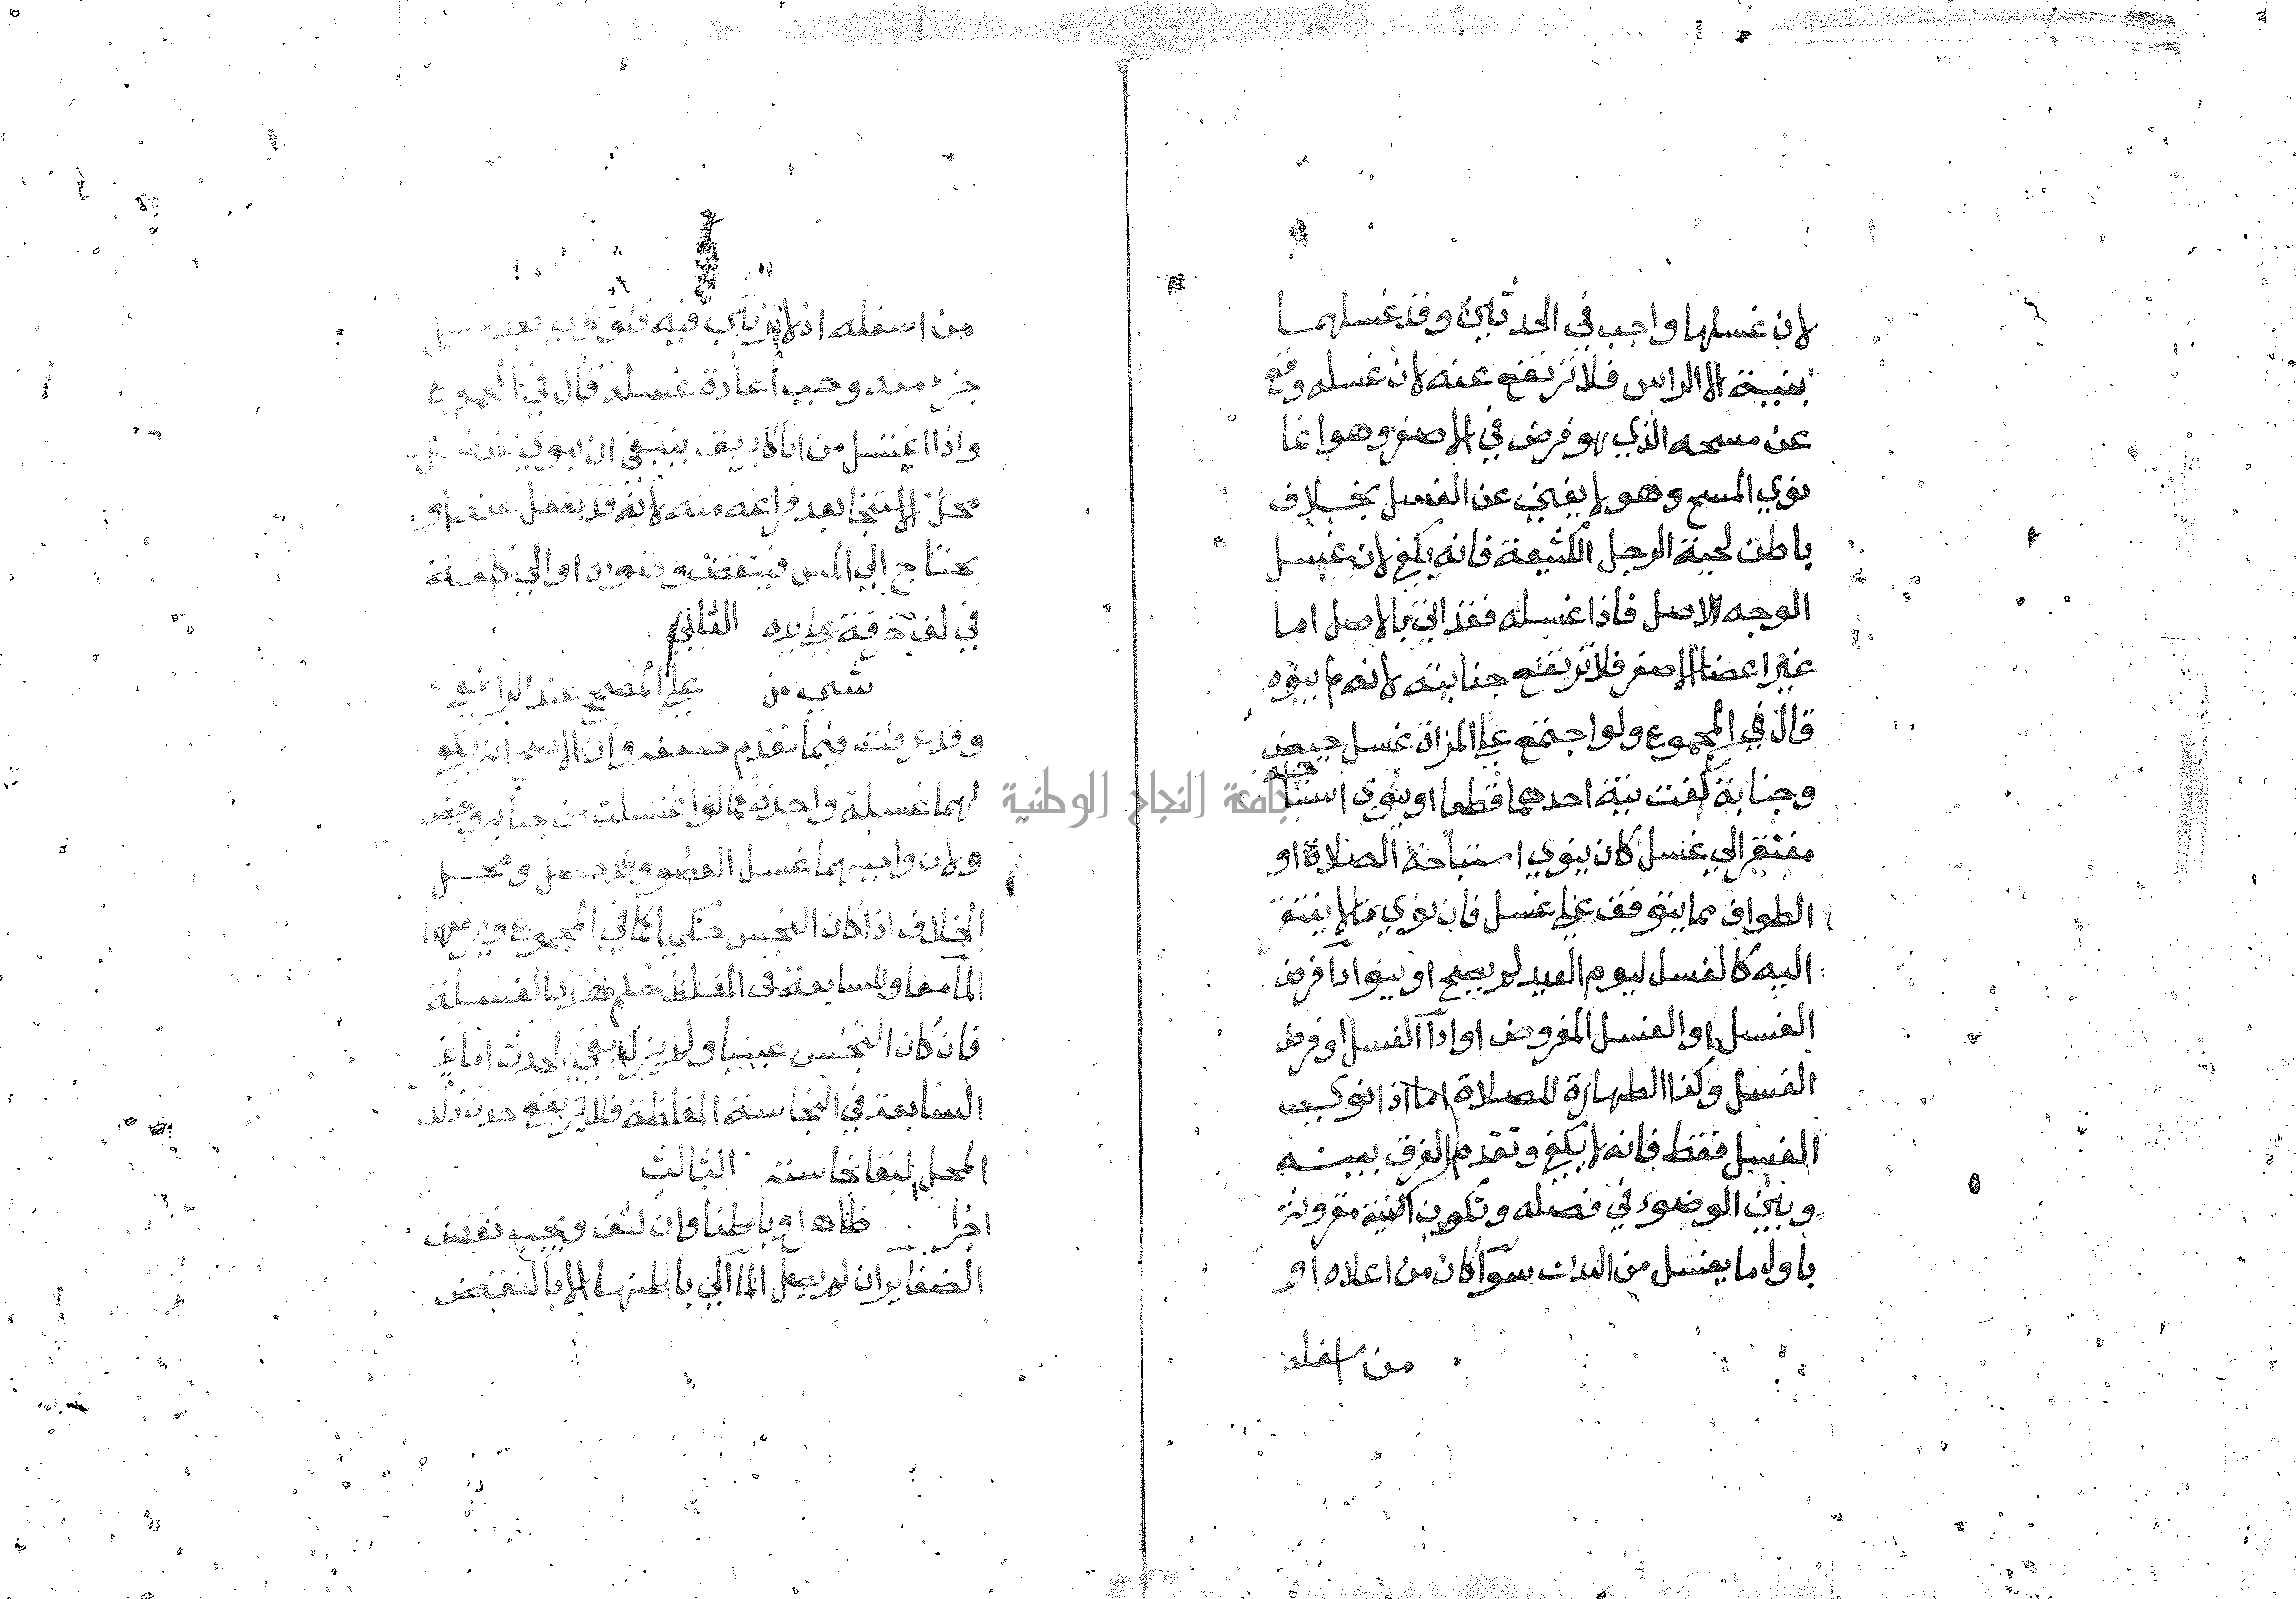 لان غسلها واجب في الحدثين وقد غسلهما
بنية الا الراس فلا ترتفع عنه لان غسله وقع
عن مسحه الذي هو فرض في الاصغر وهو انما
نوي المسح وهو لا يغني عن الغسل بخلاف
باطن لحية الرجل الكثيفة فانه يكفي لان غسل
الوجه الاصل فاذا غسله فقد اتي بالاصل اما
غير اعضا الاصغر فلا ترتفع جنابته لانه لم ينوه
قال في المجموع ولو اجتمع علي المراة غسل حيض
وجنابة كفت نية احدهما قطعا او ينوي استباحة
مفتقر الي غسل كان ينوي استباحة الصلاة او
الطواف مما يتوقف علي غسل فان نوي ما لا يفتقر
اليه كالغسل ليوم العيد لم يصح او ينو ادا فرض
الغسل او الغسل المفروض او ادا الغسل او فرض
الغسل وكذا الطهارة للصلاة اما اذا نوي
الغسل فقط فانه لا يكفي وتقدم الفرق بينه
وبين الوضوء في فصله وتكون النية مقرونة
باول ما يغسل من البدن سوآ كان من اعلاه او
من اسفله
من اسفله اذ لا ترتيب فيه فلو نوي بعد غسل
جزء منه وجب اعادة غسله قال في المجموع
واذا اغتسل من انا كابريق ينبغي ان ينوي عند غسل
محل الاستنجا بعد فراغه منه لانه قد يغفل عنه او
يحتاج الي المس فينتقض وضوءه او الي كلفة
في لف خرقة علي يده الثاني
شي من علي المصحح عند الرافعي
وقد عرفت فيما تقدم ضعفه وان الاصح انه يكفي
لهما غسلة واحدة كما لو اغتسلت من جنابه وحيض
ولان واجبهما غسل العضو وقد حصل ومحل
الخلاف اذا كان النجس حكميا كما في المجموع ويرفعهما
المآ معا وللسابعة في المغلظ حكم هذه الغسلة
فان كان النجس عينيا ولم يزل بقي الحدث اما غير
السابعة في النجاسة المغلظة فلا يرتفع حدث ذلك
المحل لبقا نجاسته الثالث
اجزا ظاهرا وباطنا وان كثف ويجب نقض
الضفاير ان لم يصل المآ الي باطنها الا بالنقض
جامعة النجاح الوطنية